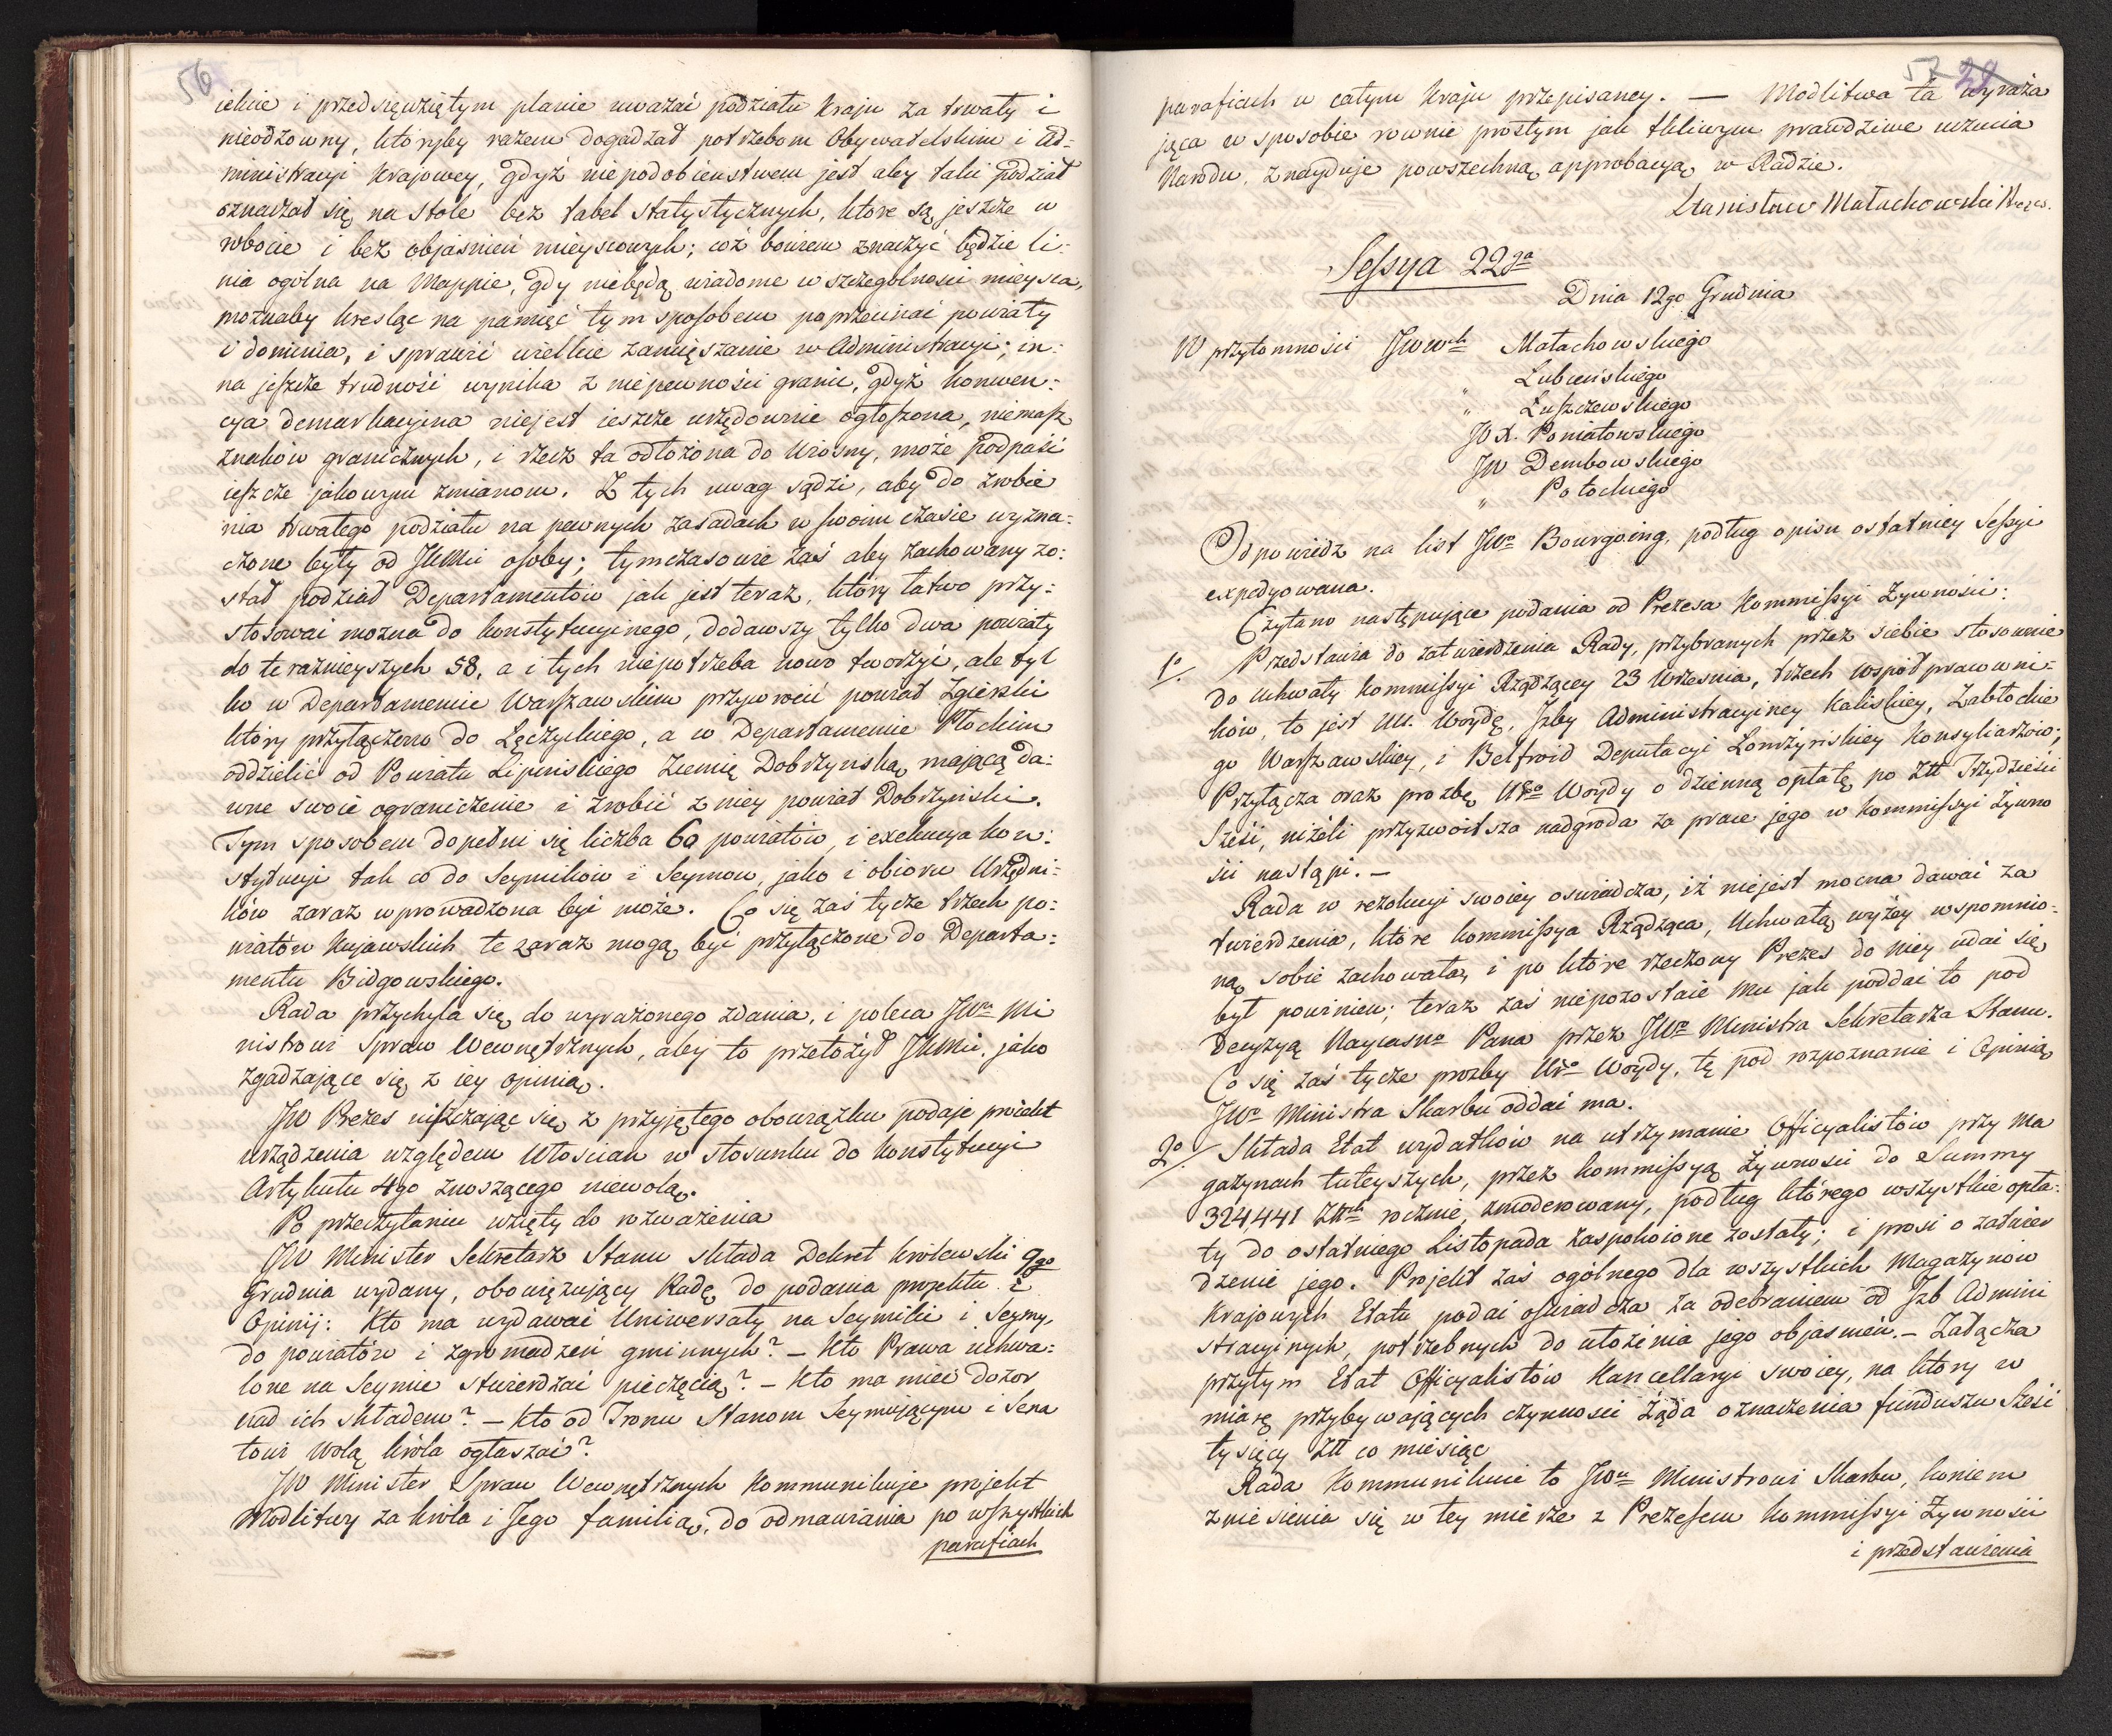 56
ielnie i przedsięwziętym planie uważać podziału Kraju za trwały i
nieodzowny, któryby razem dogadzał potrzebom Obywatelskim i Ad=
ministracyi Krajowey, gdyż niepodobieństwem jest aby taki podział
oznaczał się na stole bez tabel statystycznych, które są jeszcze w
robocie i bez objaśnień mieyscowych; cóż bowiem znaczyć będzie li=
nia ogólna na Mappie, gdy niebędą wiadome w szczególności mieysca,
możnaby kreśląc na pamięć tym sposobem poprzecinać powiaty
i dominia, i sprawić wielkie zamięszanie w Administracyi; in=
na jeszcze trudność wynika z niepewności granic, gdyż konwen=
cya demarkacyjna niejest ieszcze urzędownie ogłoszona, niemasz
znaków granicznych, i rzecz ta odłożona do Wiosny, może podpaść
ieszcze jakowym zmianom. Z tych uwag sądzi, aby do zrobie
nia trwałego podziału na pewnych zasadach w swoim czasie wyzna=
czone były od JKMci osoby; tymczasowie zaś aby zachowany zo=
stał podział Departamentów jak jest teraz, który łatwo przy=
stosować można do konstytucyinego, dodawszy tylko dwa powiaty
do teraźnieyszych 58, a i tych niepotrzeba nowo tworzyć, ale tyl
ko w Departamencie Warszawskim przywrócić powiat Zgierski
który przyłączono do Łęczyckiego, a w Departamencie Płockim
oddzielić od Powiatu Lipińskiego Ziemię Dobrzyńską mającą da=
wne swoie ograniczenie i zrobić z niey powiat Dobrzyński.
Tym sposobem dopełni się liczba 60 powiatów, i exekucya kon=
stytucyi tak co do Seymików i Seymow, jako i obioru Urzędni=
ków zaraz wprowadzona być może. Co się zaś tycze trzech po=
wiatów Kujawskich te zaraz mogą być przyłączone do Departa=
mentu Bidgowskiego.
Rada przychyla się do wyrażonego zdania, i poleca JWmu Mi
nistrowi Spraw Wewnętrznych, aby to przełożył JKMci, jako
zgadzające się z iey opinią.
JW Prezes uiszczając się z przyjętego obowiązku podaje proiekt
urządzenia względem Włoscian w stosunku do Konstytucyi
Artykułu 4go znoszącego niewolą.
Po przeczytaniu wzięty do rozważenia
JW Minister Sekretarz Stanu składa Dekret królewski 9go
Grudnia wydany, obowięzujący Radę do podania projektu i
Opinij: Kto ma wydawać Uniwersały na Seymiki i Seymy,
do powiatów i zgromadzeń gminnych? – Kto Prawa uchwa=
lone na Seymie stwierdzać pieczęcią? – Kto ma mieć dozor
nad ich składem? – Kto od Tronu Stanom Seymującym i Sena
towi wolą króla ogłaszać?
JW Minister Spraw Wewnętrznych Kommunikuje projekt
Modlitwy za króla i Jego familią, do odmawiania po wszystkich
parafiach
57 29
parafiach w całym Kraju przepisaney. — Modlitwa ta wyraża
jąca w sposobie rownie prostym jak tkliwym prawdziwe uczucia
Narodu, znayduje powszechną approbacyą w Radzie.
Stanisław Małachowski Prezes.
Sessya 22ga
Dnia 12go Grudnia
W przytomności JWWch Małachowskiego
Łubieńskiego
" Łuszczewskiego
JO X. Poniatowskiego
JW Dembowskiego
" Potockiego
Odpowiedz na list JWo Bourgoing, podług opisu ostatniey Sessyi
expedyowana.
Czytano następujące podania od Prezesa Kommissyi Żywności:
1o/. Przedstawia do zatwierdzenia Rady, przybranych przez siebie stosownie
do uchwały Kommissyi Rządzącey 23 Września, trzech współpracowni=
ków, to jest UU. Woydę, Izby Administracyiney Kaliskiey, Zabłockie
go Warszawskiey, i Belfroid Deputacyi Łomżyńskiey Konsyliarzów;
Przyłącza oraz prozbę Ur̃o Woydy o dzienną opłatę po Złł Trzydzieści
Sześć, niżeli przyzwoitsza nadgroda za prace jego w Kommissyi Żywno
ści nastąpi. –
Rada w rezolucyi swoiey oświadcza, iż niejest mocna dawać za
twierdzenia, które Kommissya Rządząca, Uchwałą wyżey wspomnio=
ną sobie zachowała, i po które rzeczony Prezes do niey udać się
był powinien; teraz zaś niepozostaie mu jak poddać to pod
Decyzyą Nayjasno Pana przez JWo Ministra Sekretarza Stanu.
Co się zaś tycze prozby Ur̃o Woydy, tę pod rozpoznanie i Opinią
JWo Ministra Skarbu oddać ma.
2o/. Składa Etat wydatków na utrzymanie Officyalistów przy Ma
gazynach tuteyszych, przez Kommissyą Żywności do Summy
324441 Złłch rocznie zmoderowany, podług którego wszystkie opła=
ty do ostatniego Listopada zaspokoione zostały; i prosi o zatwier
dzenie jego. Projekt zaś ogólnego dla wszystkich Magazynów
Krajowych Etatu podać oświadcza za odebraniem od Izb Admini
stracyinych, potrzebnych do ułożenia jego objasnień. – Załącza
przytym Etat Officyalistów Kancellaryi swoiey, na który w
miarę przybywających czynności żąda oznaczenia funduszu Sześć
tysięcy Złł co miesiąc
Rada Kommunikuie to JWu Ministrowi Skarbu, koniem
zniesienia się w tey mierze z Prezesem Kommissyi Żywności
i przedstawienia